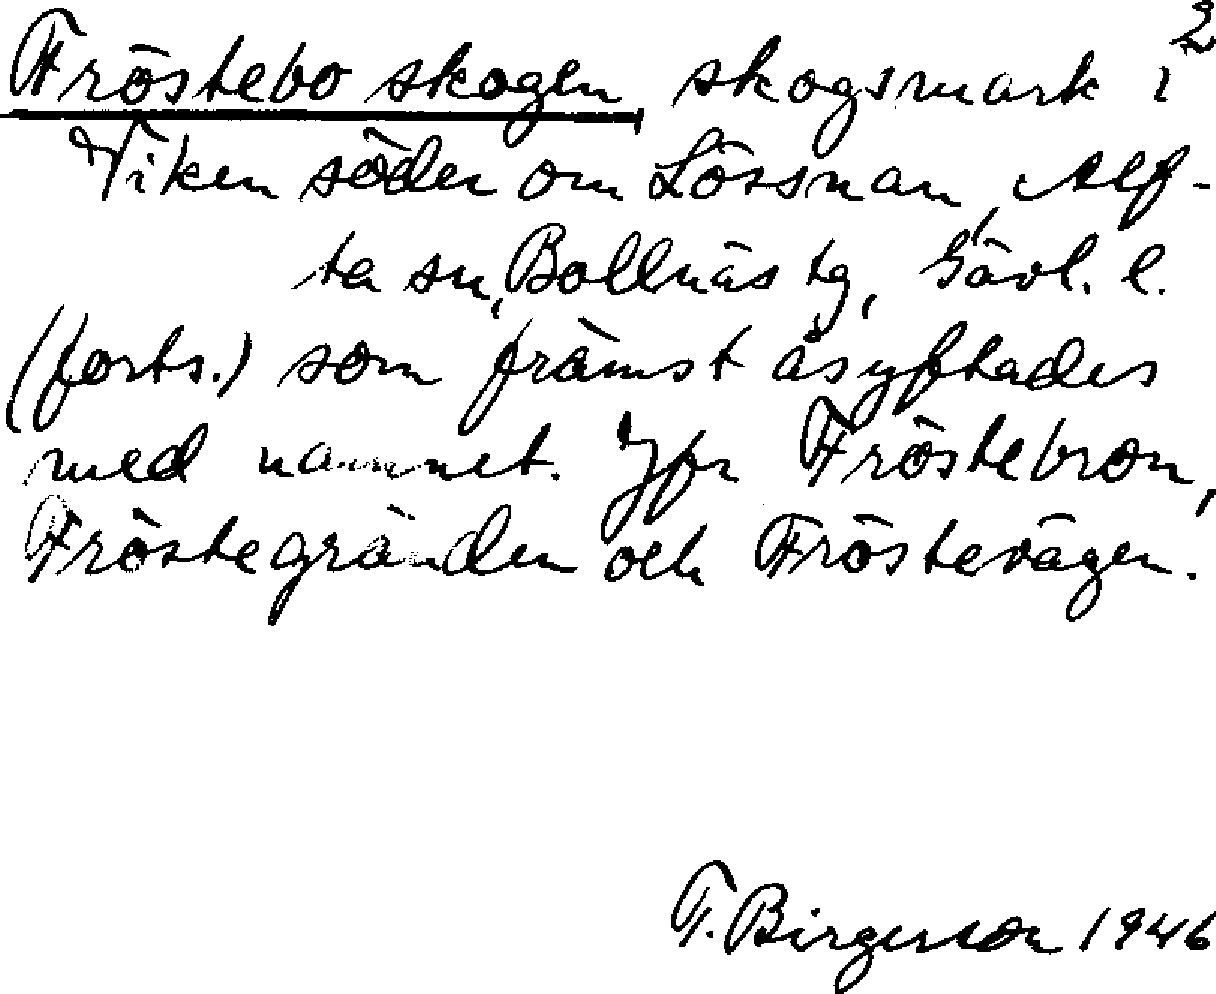 2
Fröstebo skogen, skogsmark i
Viken söder om Lössnan, Alf-
ta sn, Bollnäs tg, Gävl. l.
(forts.) som främst åsyftades
med namnet. Jfr Fröstebron,
Fröstegränden och Fröstevägen.
F. Birgerson 1946